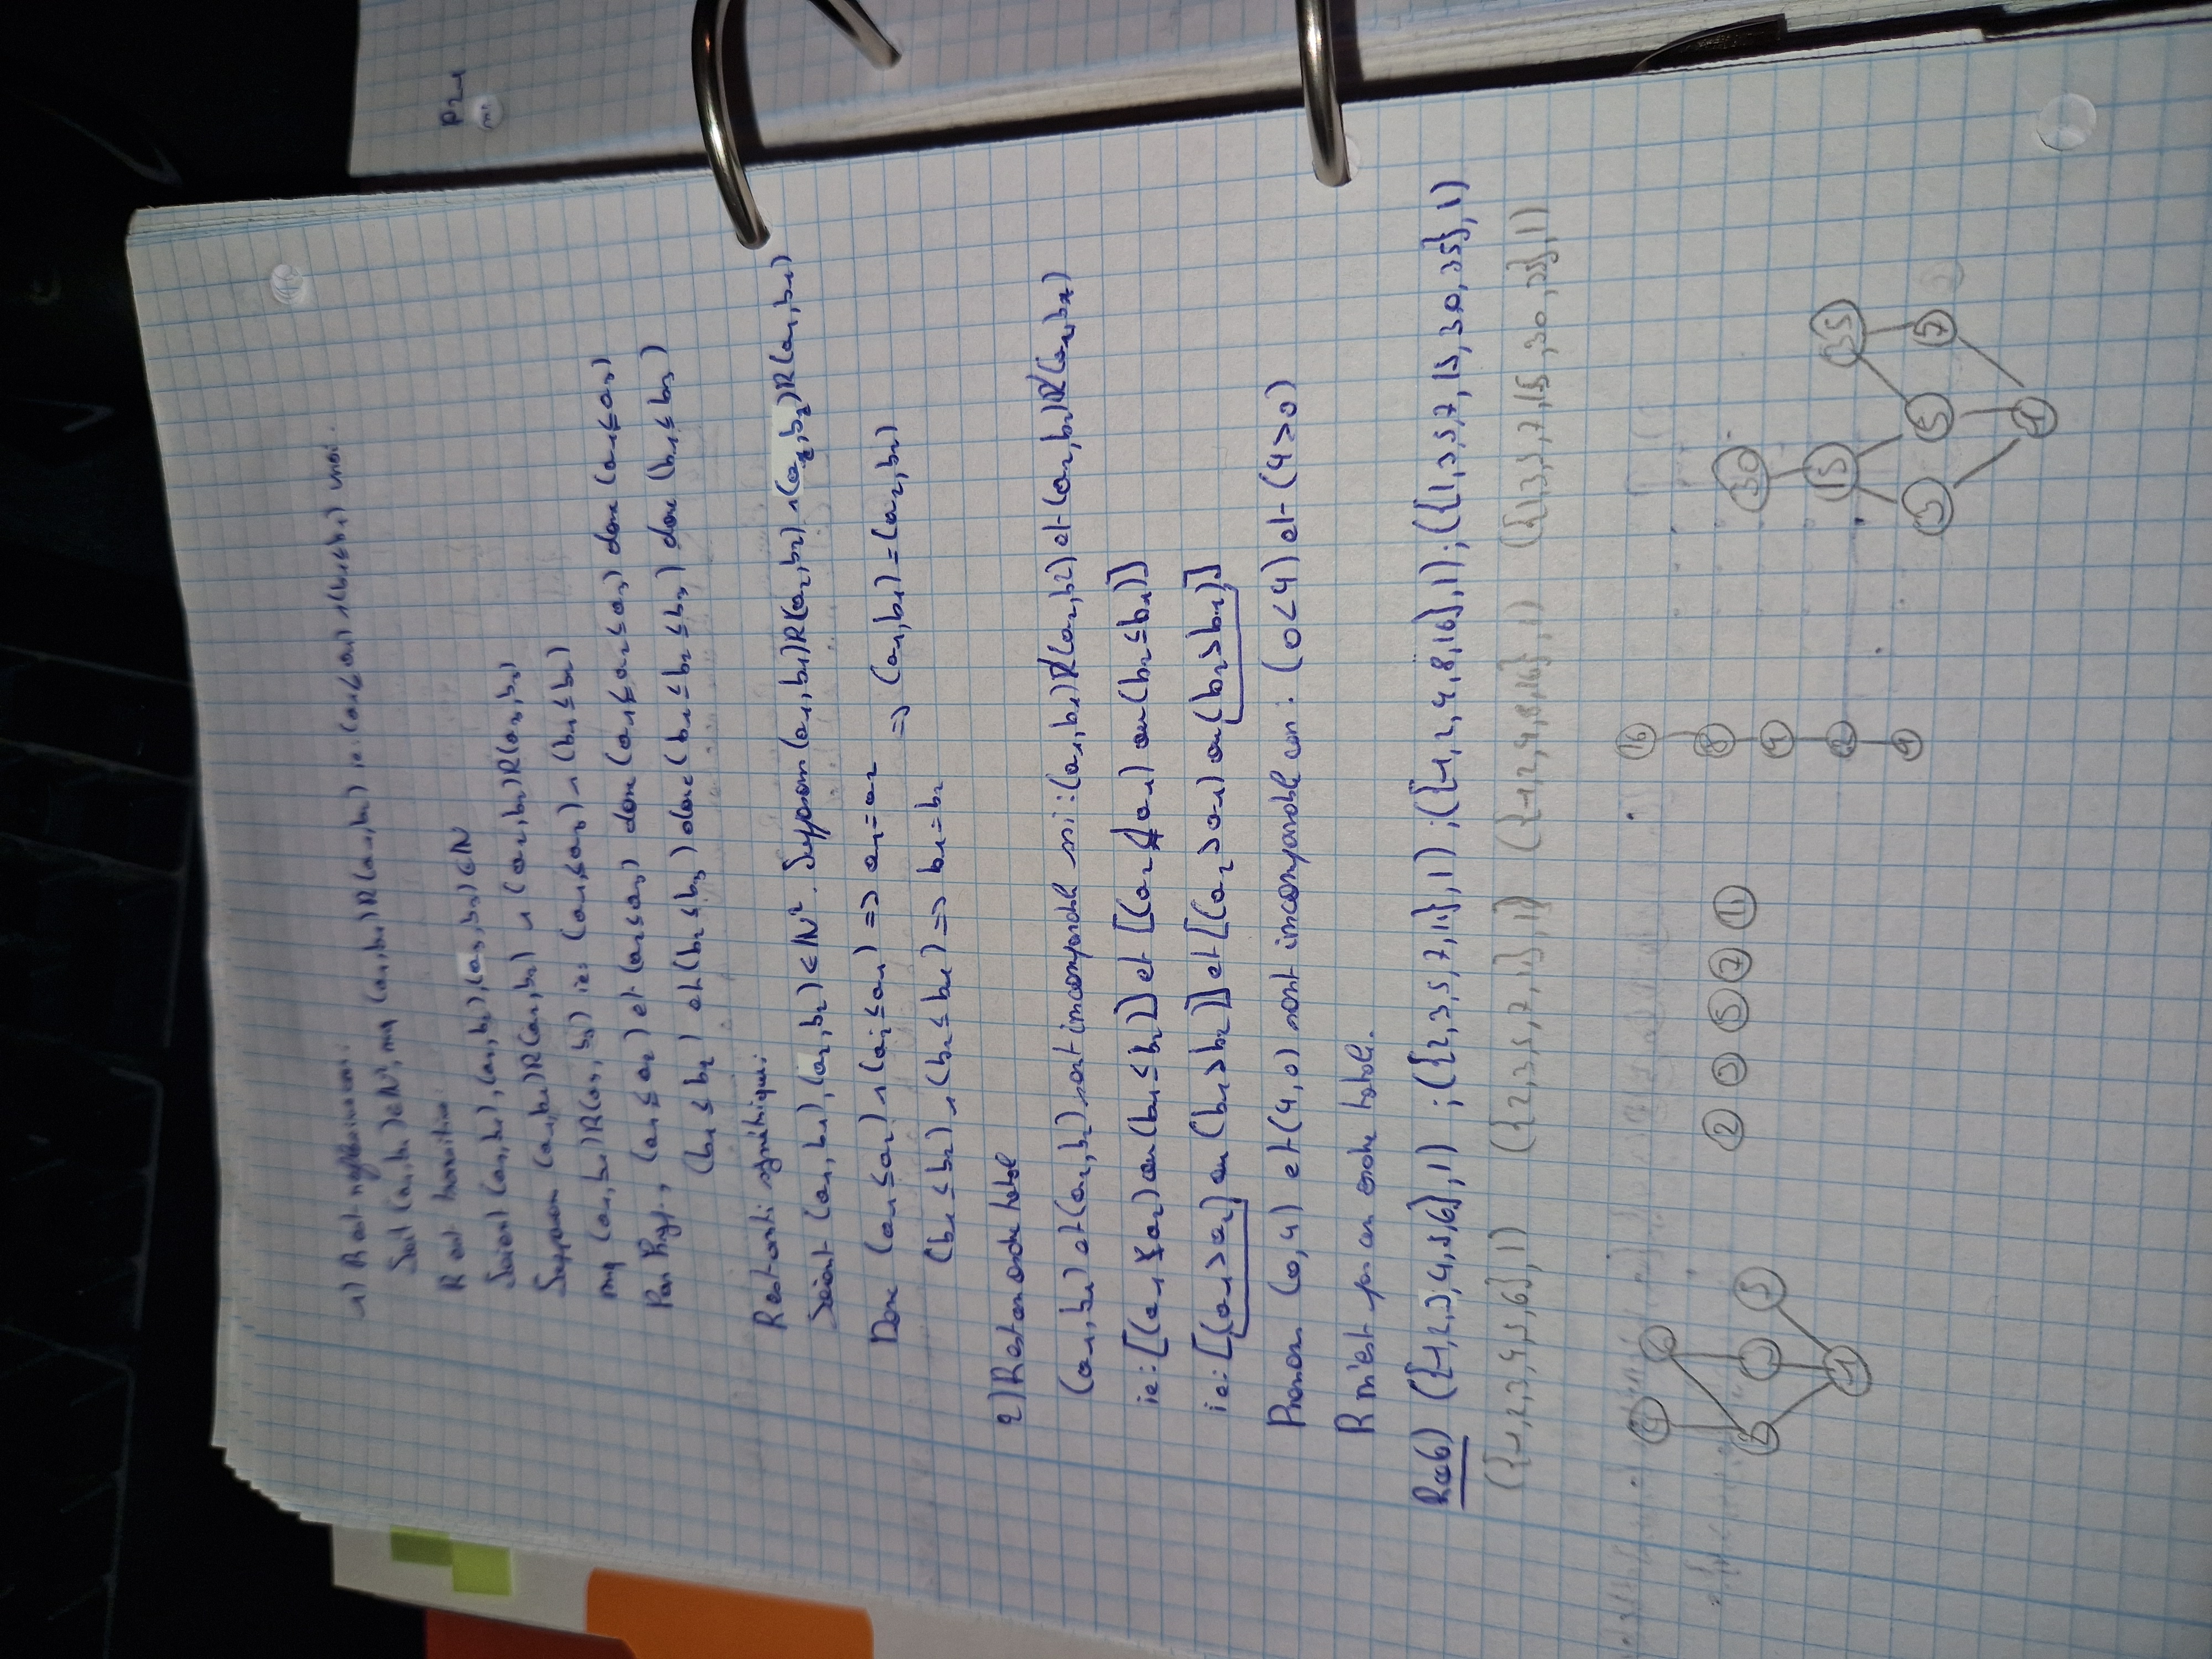 1) R est reflexive car:
Soit (a1,b1)∈ℕ², mq (a1,b1)R(a1,b1) ie: (a1≤a1)∧(b1≤b1) vrai.
R est transitive
Soient (a1,b1),(a2,b2),(a3,b3)∈ℕ
Supposons (a1,b1)R(a2,b2) ∧ (a2,b2)R(a3,b3)
mq (a1,b1)R(a3,b3) ie: (a1≤a3)∧(b1≤b2)
Par Hyp., (a1≤a2) et (a2≤a3) donc (a1≤a2≤a3) donc (a1≤a3)
(b1≤b2) et (b2≤b3) donc (b1≤b2≤b3) donc (b1≤b3)
R est anti symétrique:
Soient (a1,b1),(a2,b2)∈ℕ². Supposons (a1,b1)R(a2,b2)∧(a2,b2)R(a1,b1)
Donc (a1≤a2)∧(a2≤a1) => a1=a2
=> (a1,b1)=(a2,b2)
(b1≤b2)∧(b2≤b1) => b1=b2
2) R est un ordre total
(a1,b1) et (a2,b2) sont incomparable ssi: (a1,b1)R̸(a2,b2) et (a2,b2)R̸(a1,b1)
ie: [(a1≰a2) ou (b1≤b2)] et [(a2≰a1) ou (b2≤b1)]
ie: [(a1>a2) ou (b1>b2)] et [(a2>a1) ou (b2>b1)]
Prenons (0,4) et (4,0) sont incomparable car: (0<4) et (4>0)
R n'est pas un ordre totale.
({1,2,3,4,5,6},|) ; ({2,3,5,7,11},|) ; ({1,2,4,8,16},|) ; ({1,3,5,7,15,30,35},|)
({1,2,3,4,5,6},|) ({2,3,5,7,11},|) ({1,2,4,8,16},|) ({1,3,5,7,15,30,35},|)
4 6
2 3 5
1
2 3 5 7 11
16
8
4
2
1
30
15 35
3 5 7
1